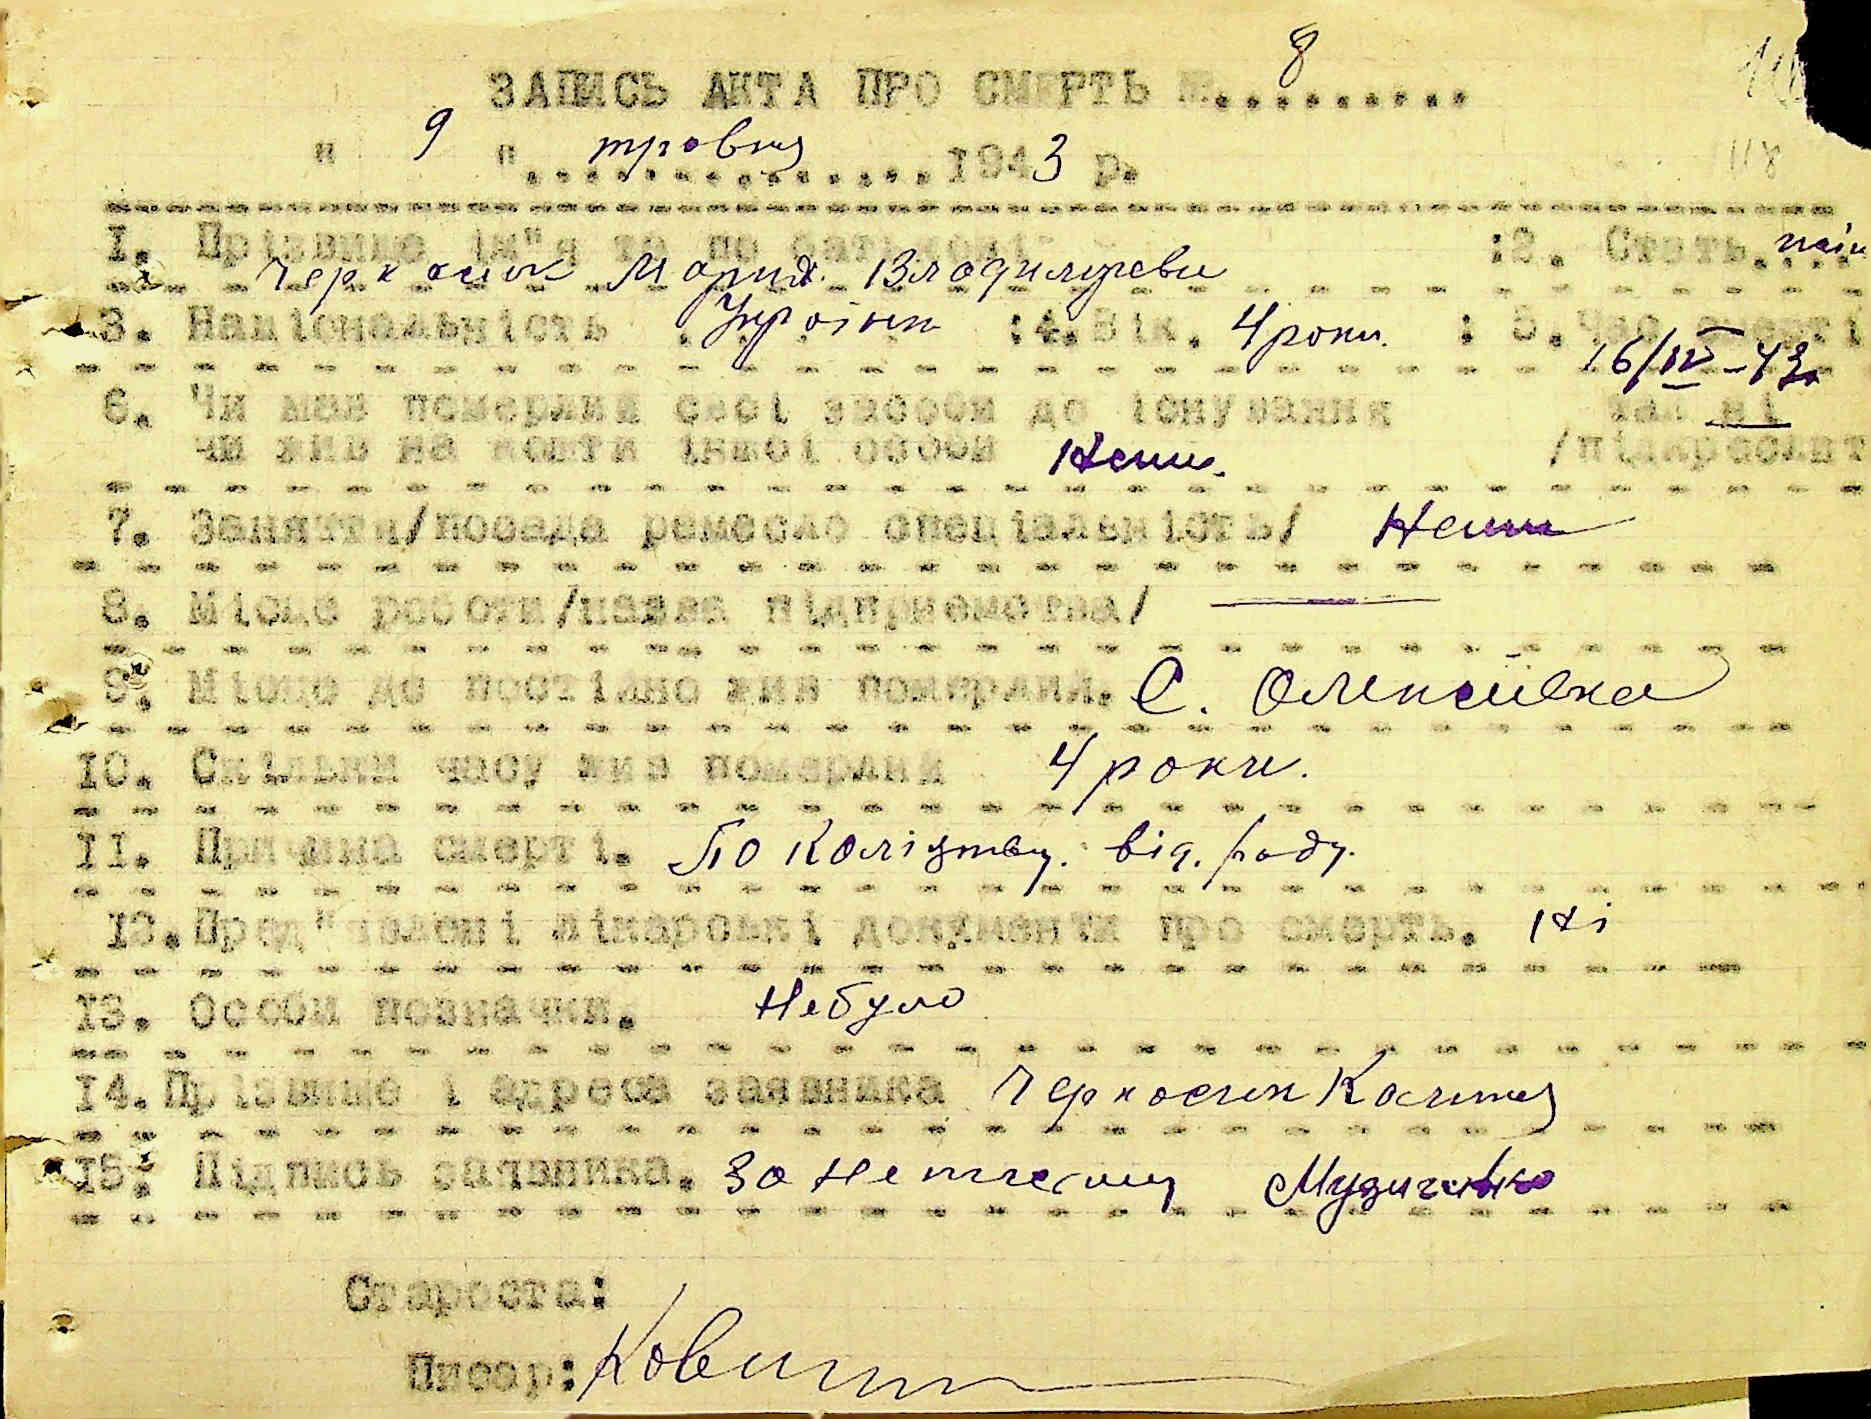 8
ЗАПИСЬ АКТА ПРО СМЕРТЬ №..........
" 9 " травня 1943 р.
118
1. Прізвище ім"я та по батькові :2. Стать.
Черкасюк Мария Владимирови
3. Національність Українк :4. Вік. 4 роки. : 5. Час смерті
16/IV-43
6. Чи мав померлий свої засоби до існування так ні
чи жив на кошти іншої особи Неми. /підкреслит
7. Заняття/посада ремесло спеціальність/ Неми
8. Місце роботи/назва підприємства/ ———
9. Місце де постійно жив померлий. С. Олексіївка
10. Скільки часу жив померлий 4 роки.
11. Причина смерті. По каліцтву. від. роду.
12. Пред"явлені лікарські документи про смерть. Ні
13. Особи познач​ки. Небуло
14. Прізвище і адреса заявника Черкосюк Катя
15. Підпись заявника. За не письмену Музиченко
Староста:
Писар: